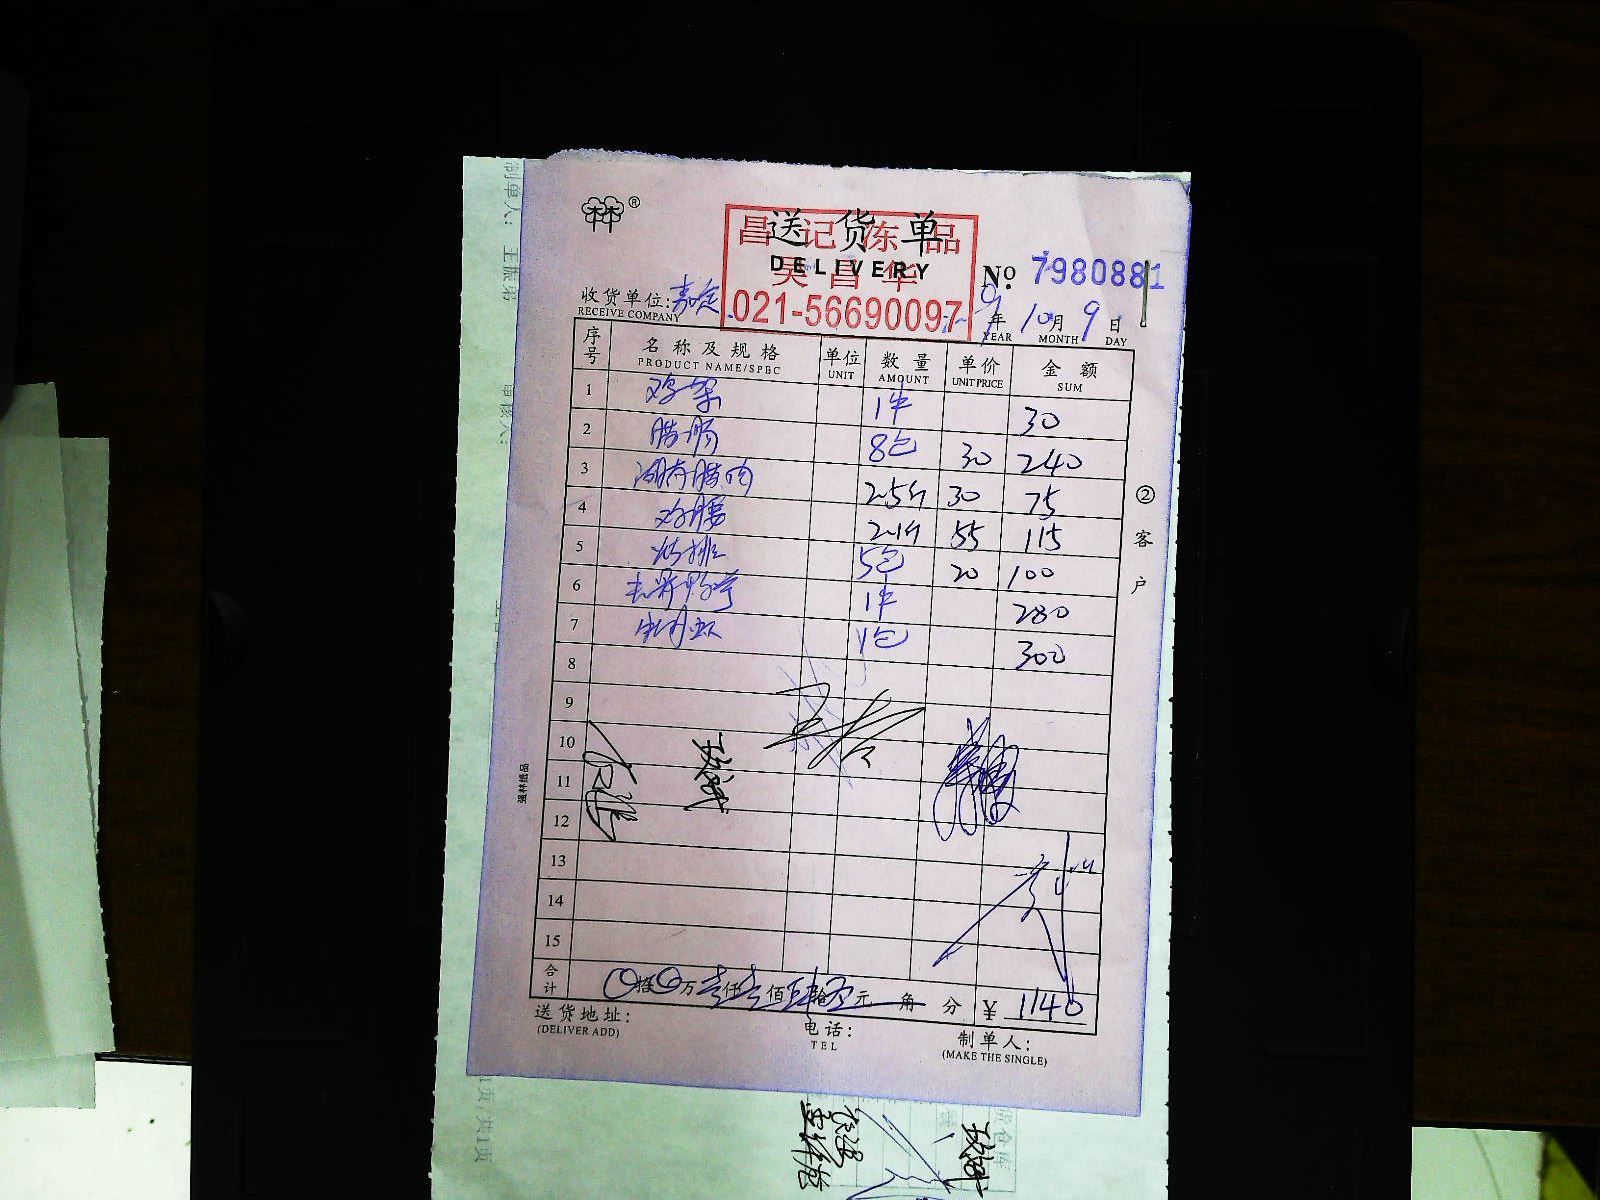 林®
送货单
DELIVERY
昌记冻品
吴昌华
021-56690097
№ 7980881
收货单位:嘉定
RECEIVE COMPANY
年 10月 9日
YEAR MONTH DAY
序号 名称及规格 单位 数量 单价 金额
PRODUCT NAME/SPBC UNIT AMOUNT UNIT PRICE SUM
1 鸡架 1件 30
2 腊肠 8包 30 240
3 湖南腊肉 2.5斤 30 75
4 鸡腰 2.1斤 55 115
5 5包 20 100
6 1件 280
7 1包 300
8
9
10
11
12
13
14
15
合计 拾 万壹仟壹佰肆拾 元 角 分 ¥ 1140
送货地址: 电话: 制单人:
(DELIVER ADD) TEL (MAKE THE SINGLE)
②客户
强林纸品
制单人: 王振弟
审核人:
1页/共1页